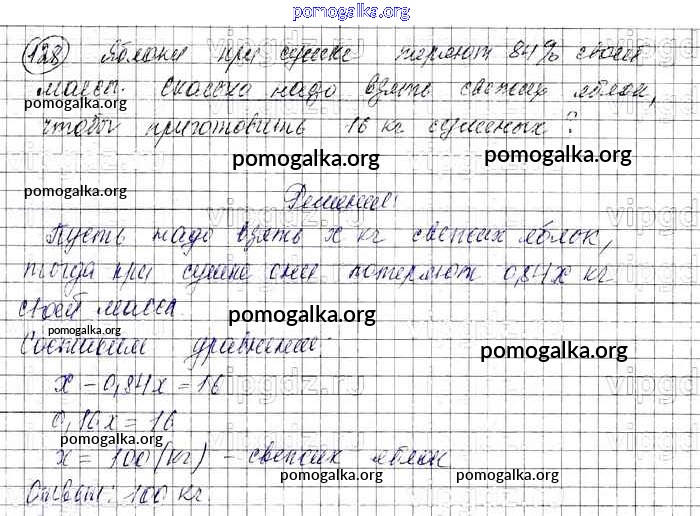 pomogalka.org
128 Яблоки при сушке теряют 84% своей
массы. Сколько надо взять свежих яблок,
pomogalka.org
чтобы приготовить 16 кг сушеных?
pomogalka.org pomogalka.org
pomogalka.org
Решение:
Пусть надо взять x кг свежих яблок,
тогда при сушке они потеряют 0,84x кг
своей массы.
pomogalka.org
pomogalka.org
Составим уравнение:
pomogalka.org
x - 0,84x = 16
0,16x = 16
pomogalka.org
x = 100 (кг) - свежих яблок
pomogalka.org pomogalka.org
Ответ: 100 кг.
pomogalka.org